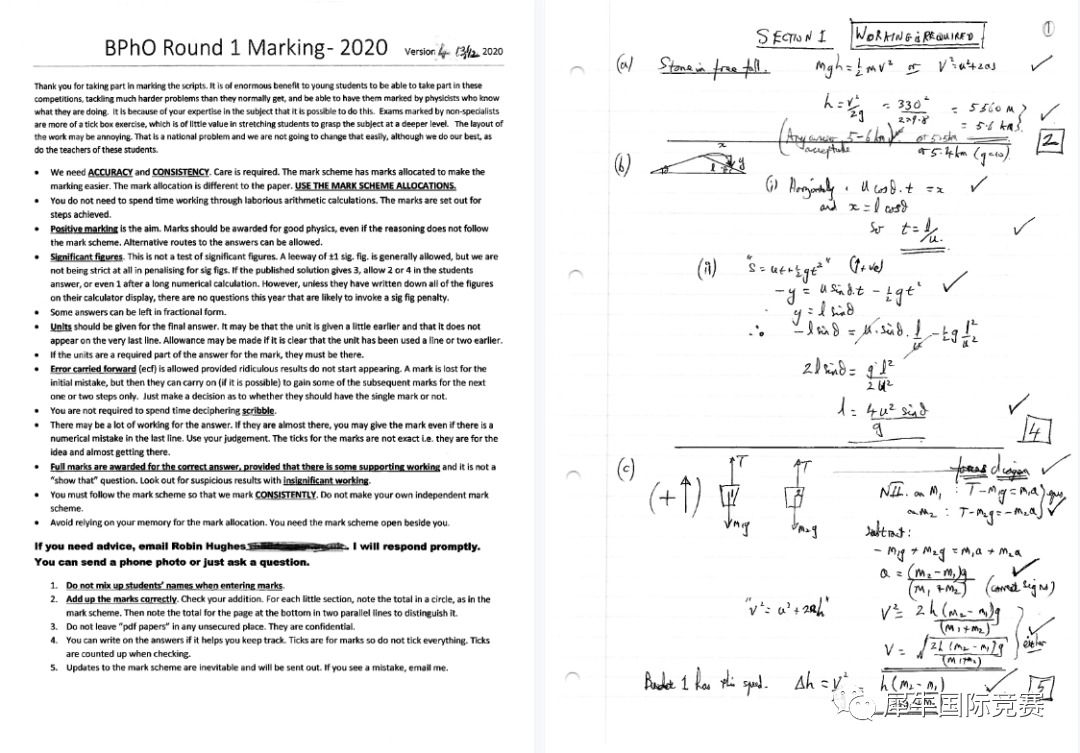 BPhO Round 1 Marking- 2020 Version 4 13/12 2020
Thank you for taking part in marking the scripts. It is of enormous benefit to young students to be able to take part in these
competitions, tackling much harder problems than they normally get, and be able to have them marked by physicists who know
what they are doing. It is because of your expertise in the subject that it is possible to do this. Exams marked by non-specialists
are more of a tick box exercise, which is of little value in stretching students to grasp the subject at a deeper level. The layout of
the work may be annoying. That is a national problem and we are not going to change that easily, although we do our best, as
do the teachers of these students.
• We need ACCURACY and CONSISTENCY. Care is required. The mark scheme has marks allocated to make the
marking easier. The mark allocation is different to the paper. USE THE MARK SCHEME ALLOCATIONS.
• You do not need to spend time working through laborious arithmetic calculations. The marks are set out for
steps achieved.
• Positive marking is the aim. Marks should be awarded for good physics, even if the reasoning does not follow
the mark scheme. Alternative routes to the answers can be allowed.
• Significant figures. This is not a test of significant figures. A leeway of ±1 sig. fig. is generally allowed, but we are
not being strict at all in penalising for sig figs. If the published solution gives 3, allow 2 or 4 in the students
answer, or even 1 after a long numerical calculation. However, unless they have written down all of the figures
on their calculator display, there are no questions this year that are likely to invoke a sig fig penalty.
• Some answers can be left in fractional form.
• Units should be given for the final answer. It may be that the unit is given a little earlier and that it does not
appear on the very last line. Allowance may be made if it is clear that the unit has been used a line or two earlier.
• If the units are a required part of the answer for the mark, they must be there.
• Error carried forward (ecf) is allowed provided ridiculous results do not start appearing. A mark is lost for the
initial mistake, but then they can carry on (if it is possible) to gain some of the subsequent marks for the next
one or two steps only. Just make a decision as to whether they should have the single mark or not.
• You are not required to spend time deciphering scribble.
• There may be a lot of working for the answer. If they are almost there, you may give the mark even if there is a
numerical mistake in the last line. Use your judgement. The ticks for the marks are not exact i.e. they are for the
idea and almost getting there.
• Full marks are awarded for the correct answer, provided that there is some supporting working and it is not a
"show that" question. Look out for suspicious results with insignificant working.
• You must follow the mark scheme so that we mark CONSISTENTLY. Do not make your own independent mark
scheme.
• Avoid relying on your memory for the mark allocation. You need the mark scheme open beside you.
If you need advice, email Robin Hughes. I will respond promptly.
You can send a phone photo or just ask a question.
1. Do not mix up students' names when entering marks.
2. Add up the marks correctly. Check your addition. For each little section, note the total in a circle, as in the
mark scheme. Then note the total for the page at the bottom in two parallel lines to distinguish it.
3. Do not leave "pdf papers" in any unsecured place. They are confidential.
4. You can write on the answers if it helps you keep track. Ticks are for marks so do not tick everything. Ticks
are counted up when checking.
5. Updates to the mark scheme are inevitable and will be sent out. If you see a mistake, email me.
SECTION 1 WORKING IS REQUIRED ①
(a) Stone in free fall. mgh = ½mv² or v² = u² + 2as ✓
h = v²/2g = 330²/2×9.8 = 5560 m
= 5.6 km ✓
(Any answer 5-6 km acceptable or 5.5 km
or 5.4 km (g=10)) 2
(b) x y l
(i) Horizontally, u cosθ.t = x ✓
and x = l cosθ
so t = l/u ✓
(ii) "s = ut + ½gt²" (↑+ve)
-y = u sinθ.t - ½gt² ✓
y = l sinθ
∴ -l sinθ = u.sinθ.l/u - ½g l²/u²
2l sinθ = g l²/2u²
l = 4u² sinθ/g ✓ 4
(c) T T forces diagram ✓
(+↑) m₁g m₂g
NII. on m₁ : T - m₁g = m₁a
on m₂ : T - m₂g = -m₂a ✓
subtract:
-m₁g + m₂g = m₁a + m₂a
a = (m₂ - m₁)g/(m₁ + m₂) ✓ (correct signs)
"v² = u² + 2ah" v² = 2h(m₂ - m₁)g/(m₁ + m₂)
v = √2h(m₂ - m₁)g/(m₁+m₂) either ✓
Bucket 1 has this speed. Δh = v² h(m₂ - m₁) ✓ 5
犀牛国际竞赛